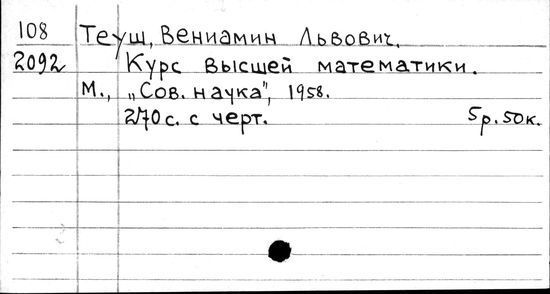 108 Теущ, Вениамин Львович.
2092 Курс высшей математики.
М., „Сов. наука", 1958.
270 с. с черт. 5 р. 50 к.